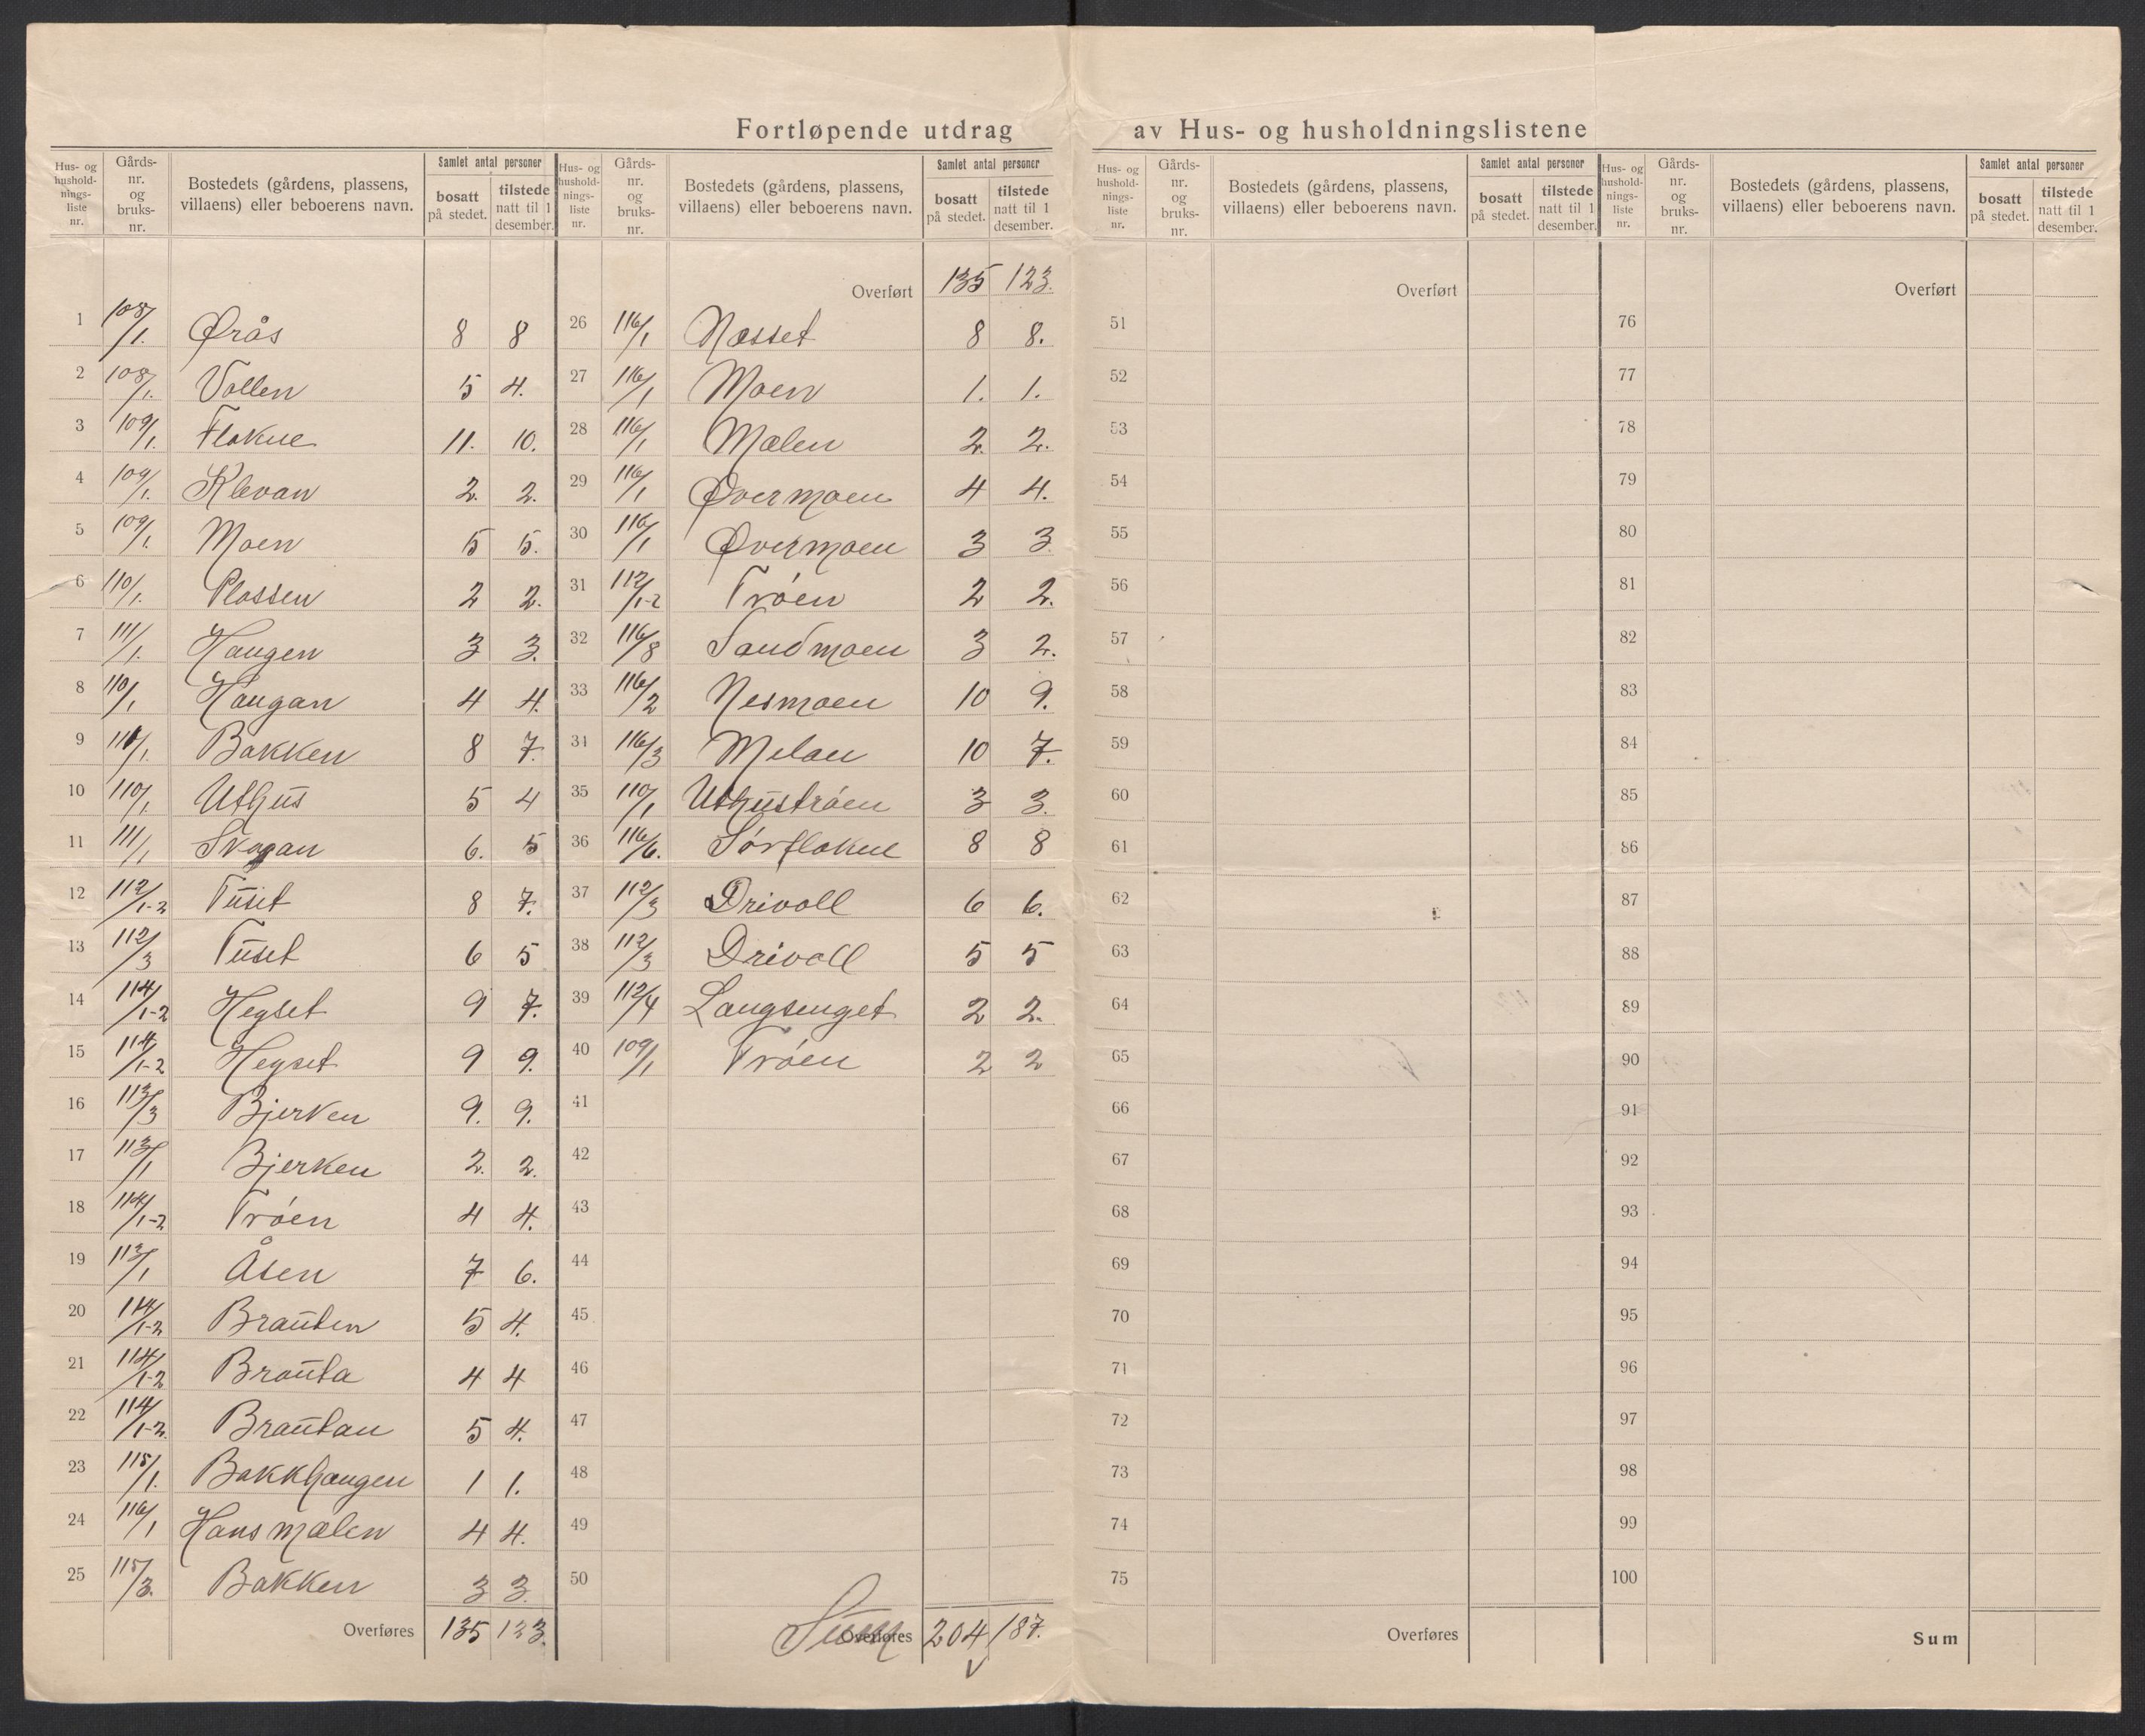 Fortløpende utdrag av Hus- og husholdningslistene
Hus- og husholdnings-liste nr. Gårds-nr. og bruks-nr. Bostedets (gårdens, plassens, villaens) eller beboerens navn. Samlet antal personer bosatt på stedet. tilstede natt til 1 desember.
1 108/1. Ørås 8 8
2 108/1. Vollen 5 4.
3 109/1. Flaknе 11. 10.
4 109/1. Klevan 2. 2.
5 109/1. Moen 5 5.
6 110/1. Plassen 2 2.
7 111/1. Haugen 3 3.
8 110/1 Haugan 4 4.
9 110/1. Bakken 8 7.
10 110/1. Uthus 5 4
11 111/1 Skogan 6. 5
12 112/1-2 Tuset 8 7.
13 112/3 Tuset 6 5
14 114/1-2 Hegset 9 7.
15 114/1-2 Hegset 9 9.
16 113/3 Bjerken 9. 9.
17 113/1 Bjerken 2. 2.
18 114/1-2 Trøen 4 4.
19 113/1 Åsen 7 6.
20 114/1-2 Brauten 5 4.
21 114/1-2 Brauta 4 4
22 114/1-2. Brautan 5 4.
23 115/1. Bakkhaugen 1 1.
24 116/1 Hansmælen 4 4.
25 115/3. Bakken 3 3.
Overføres 135 123.
Hus- og husholdnings-liste nr. Gårds-nr. og bruks-nr. Bostedets (gårdens, plassens, villaens) eller beboerens navn. Samlet antal personer bosatt på stedet. tilstede natt til 1 desember.
Overført 135 123.
26 116/1 Næsset 8 8.
27 116/1 Moen 1. 1.
28 116/1 Mælen 2. 2.
29 116/1 Øvermoen 4 4.
30 116/1 Øvermoen 3 3
31 112/1-2 Trøen 2 2.
32 116/8 Sandmoen 3 2.
33 116/2 Nesmoen 10 9.
34 116/3 Melan 10 7.
35 110/1 Uthustrøen 3 3.
36 116/6. Sørflakne 8 8
37 112/3 Drivoll 6 6.
38 112/3 Drivoll 5 5
39 112/4 Langsenget 2 2.
40 109/1 Trøen 2 2
41
42
43
44
45
46
47
48
49
50
Overføres Sum 204 187.
Hus- og husholdnings-liste nr. Gårds-nr. og bruks-nr. Bostedets (gårdens, plassens, villaens) eller beboerens navn. Samlet antal personer bosatt på stedet. tilstede natt til 1 desember.
Overført
51
52
53
54
55
56
57
58
59
60
61
62
63
64
65
66
67
68
69
70
71
72
73
74
75
Overføres
Hus- og husholdnings-liste nr. Gårds-nr. og bruks-nr. Bostedets (gårdens, plassens, villaens) eller beboerens navn. Samlet antal personer bosatt på stedet. tilstede natt til 1 desember.
Overført
76
77
78
79
80
81
82
83
84
85
86
87
88
89
90
91
92
93
94
95
96
97
98
99
100
Sum